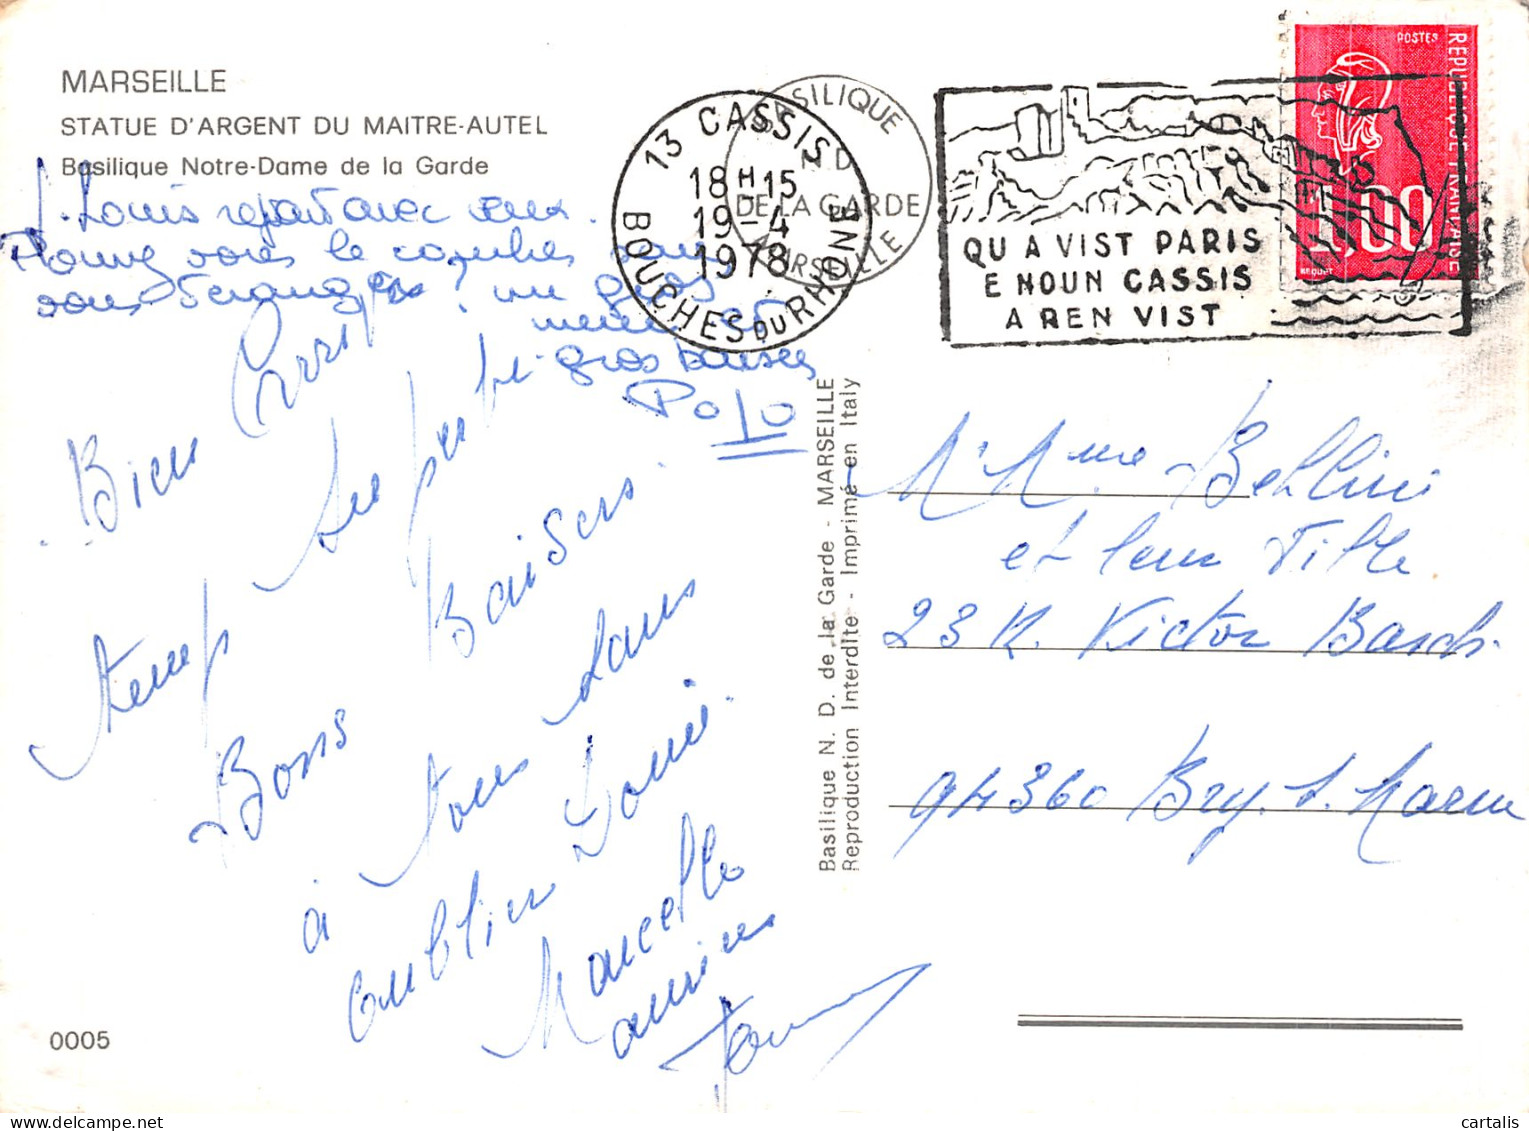 MARSEILLE
STATUE D'ARGENT DU MAITRE-AUTEL
Basilique Notre-Dame de la Garde
J. Louis repart avec eux.
vous le
vous un gros
merci et
gros baisers
Polo
Bien
temps superbe.
Bons Baisers.
à tous sans
oublier
Marcelle
amities
0005
13 CASSIS
18H15
19-4
1978
BOUCHES DU RHONE
BASILIQUE
N D
DE LA GARDE
MARSEILLE
QU A VIST PARIS
E NOUN CASSIS
A REN VIST
POSTES
REPUBLIQUE FRANCAISE
1,00
BEQUET
Basilique N. D. de la Garde - MARSEILLE
Reproduction Interdite - Imprimé en Italy
M. Mme Bellini
et leur Fille
23 R. Victor Basch.
94360 Bry. s. Marne
cartalis